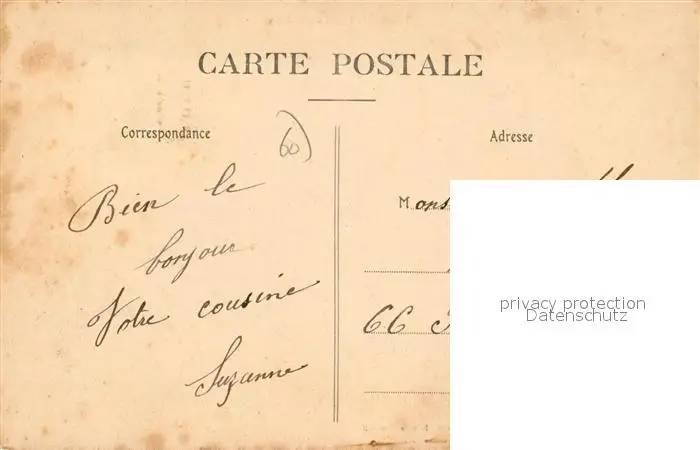 CARTE POSTALE
Correspondance
60
Adresse
Bien le
bonjour
Votre cousine
Suzanne
Mons
66
privacy protection
Datenschutz